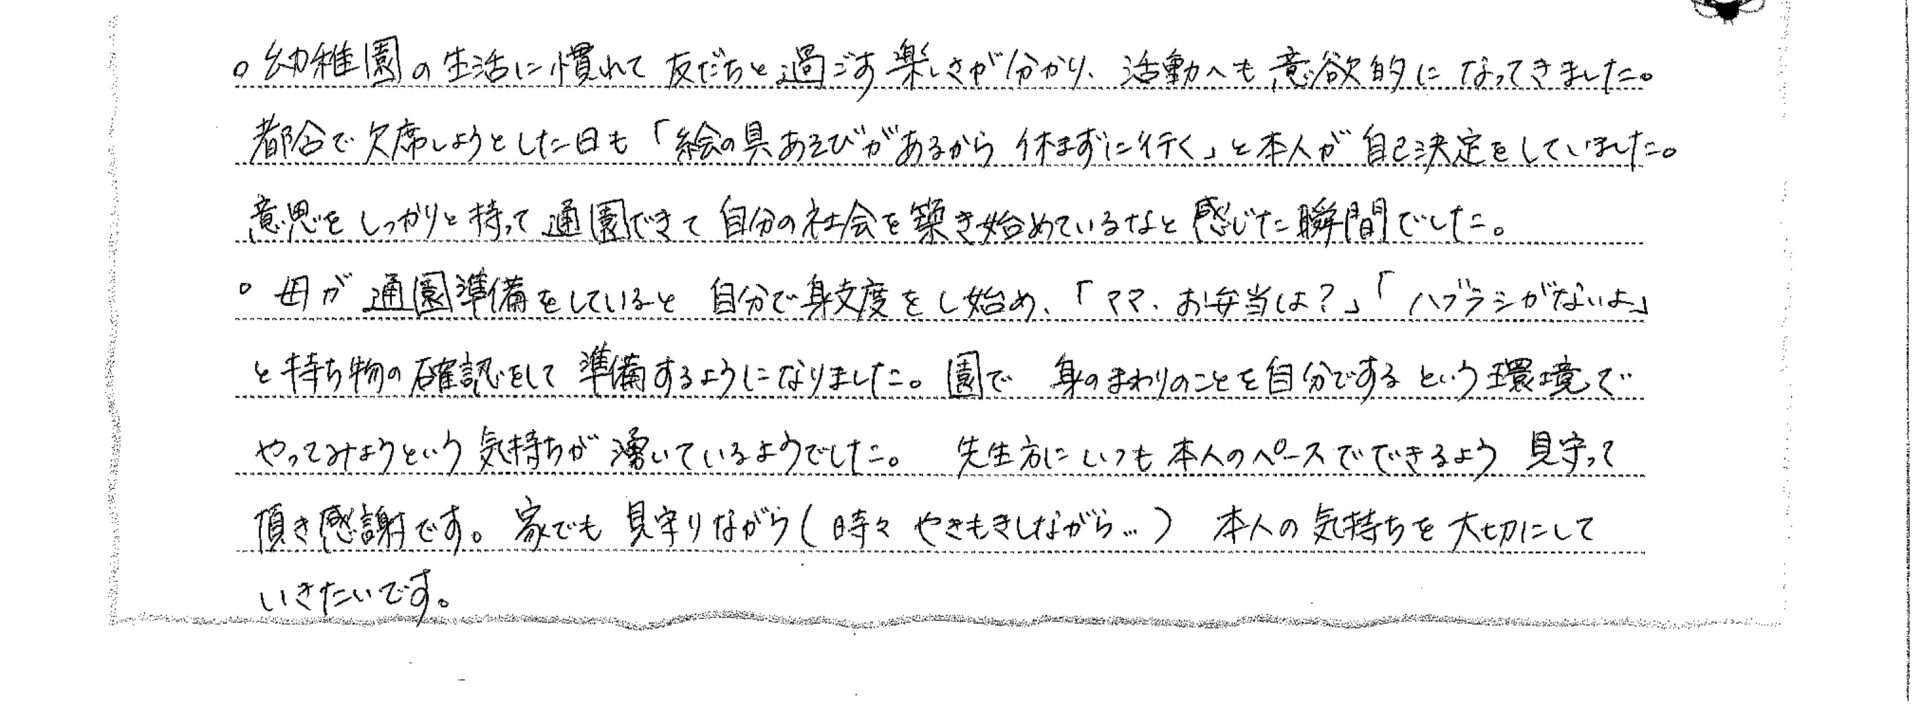 ○幼稚園の生活に慣れて 友だちと過ごす楽しさが分かり、活動へも意欲的になってきました。
都合で欠席しようとした日も「絵の具あそびがあるから 休まずに行く」と本人が自己決定をしていました。
意思をしっかりと持って通園できて自分の社会を築き始めているなと感じた瞬間でした。
○母が通園準備をしていると 自分で身支度をし始め、「ママ、お弁当は?」「ハブラシがないよ」
と持ち物の確認をして準備するようになりました。園で 身のまわりのことを自分でするという環境で
やってみようという気持ちが湧いているようでした。 先生方にいつも本人のペースでできるよう 見守って
頂き感謝です。家でも見守りながら(時々 やきもきしながら…) 本人の気持ちを大切にして
いきたいです。